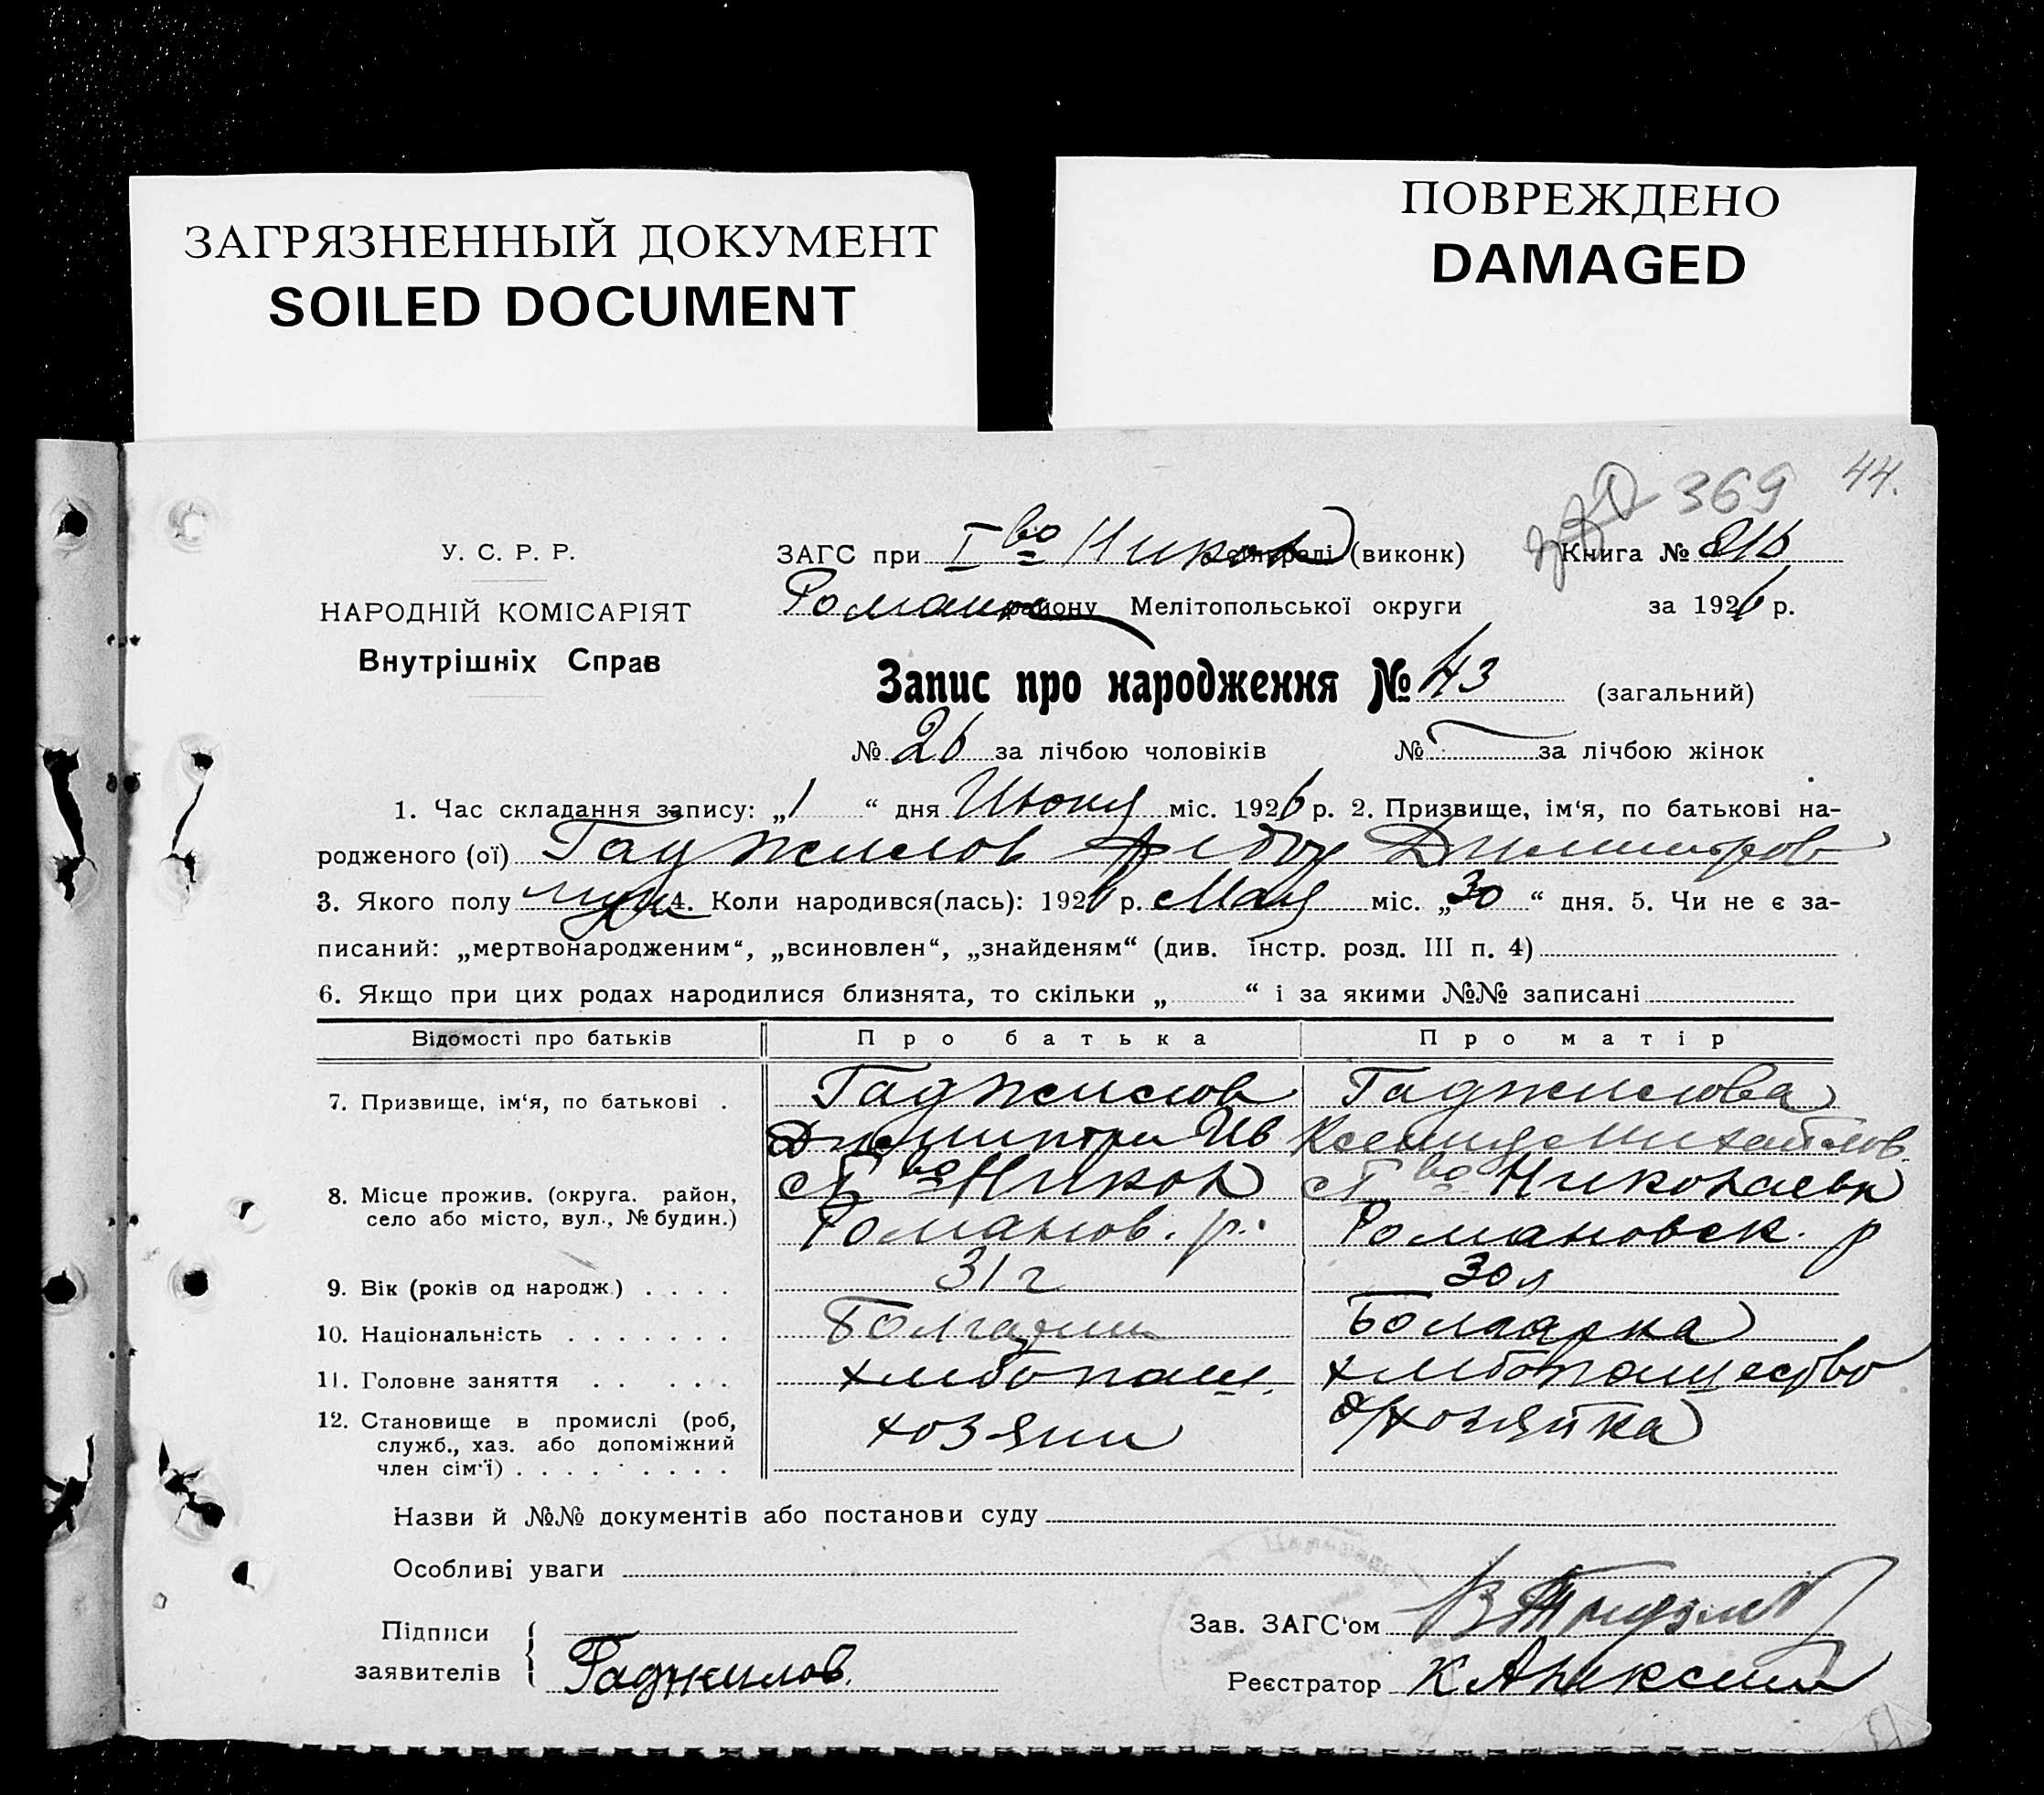 ЗАГРЯЗНЕННЫЙ ДОКУМЕНТ
SOILED DOCUMENT
ПОВРЕЖДЕНО
DAMAGED
369 44.
У. С. Р. Р.
НАРОДНІЙ КОМІСАРІЯТ
Внутрішніх Справ
ЗАГС при І во Никол сільраді (виконк) Книга №
Романов району Мелітопольської округи за 1926 р.
Запис про народження № 43 (загальний)
№ 26 за лічбою чоловіків № за лічбою жінок
1. Час складання запису: „1“ дня Июня міс. 1926 р. 2. Призвище, ім‘я, по батькові на-
родженого (ої) Гаджилов Димитров
3. Якого полу муж 4. Коли народився(лась): 1926 р. Мая міс. „30“ дня. 5. Чи не є за-
писаний: „мертвонародженим“, „всиновлен“, „знайденям“ (див. інстр. розд. III п. 4)
6. Якщо при цих родах народилися близнята, то скільки „ “ і за якими №№ записані
Відомості про батьків Про батька Про матір
7. Призвище, ім‘я, по батькові . Гаджилов Гаджилова
Димитри Ив Ксения Михайлов.
8. Місце прожив. (округа. район, село або місто, вул., № будин.) с І во Никол с І во Николаевк
Романов. р. Романовск. р
9. Вік (років од народж.) . . . . 31 г 30 л
10. Національність . . . . . . . Болгарин Болгарка
11. Головне заняття . . . . . хлибопаш. хлибопашество
12. Становище в промислі (роб, служб., хаз. або допоміжний член сім‘ї) . . . . . . . . . хозяин д/хозяйка
Назви й №№ документів або постанови суду
Особливі уваги
Підписи заявителів Гаджилов.
Зав. ЗАГС‘ом
Реєстратор К